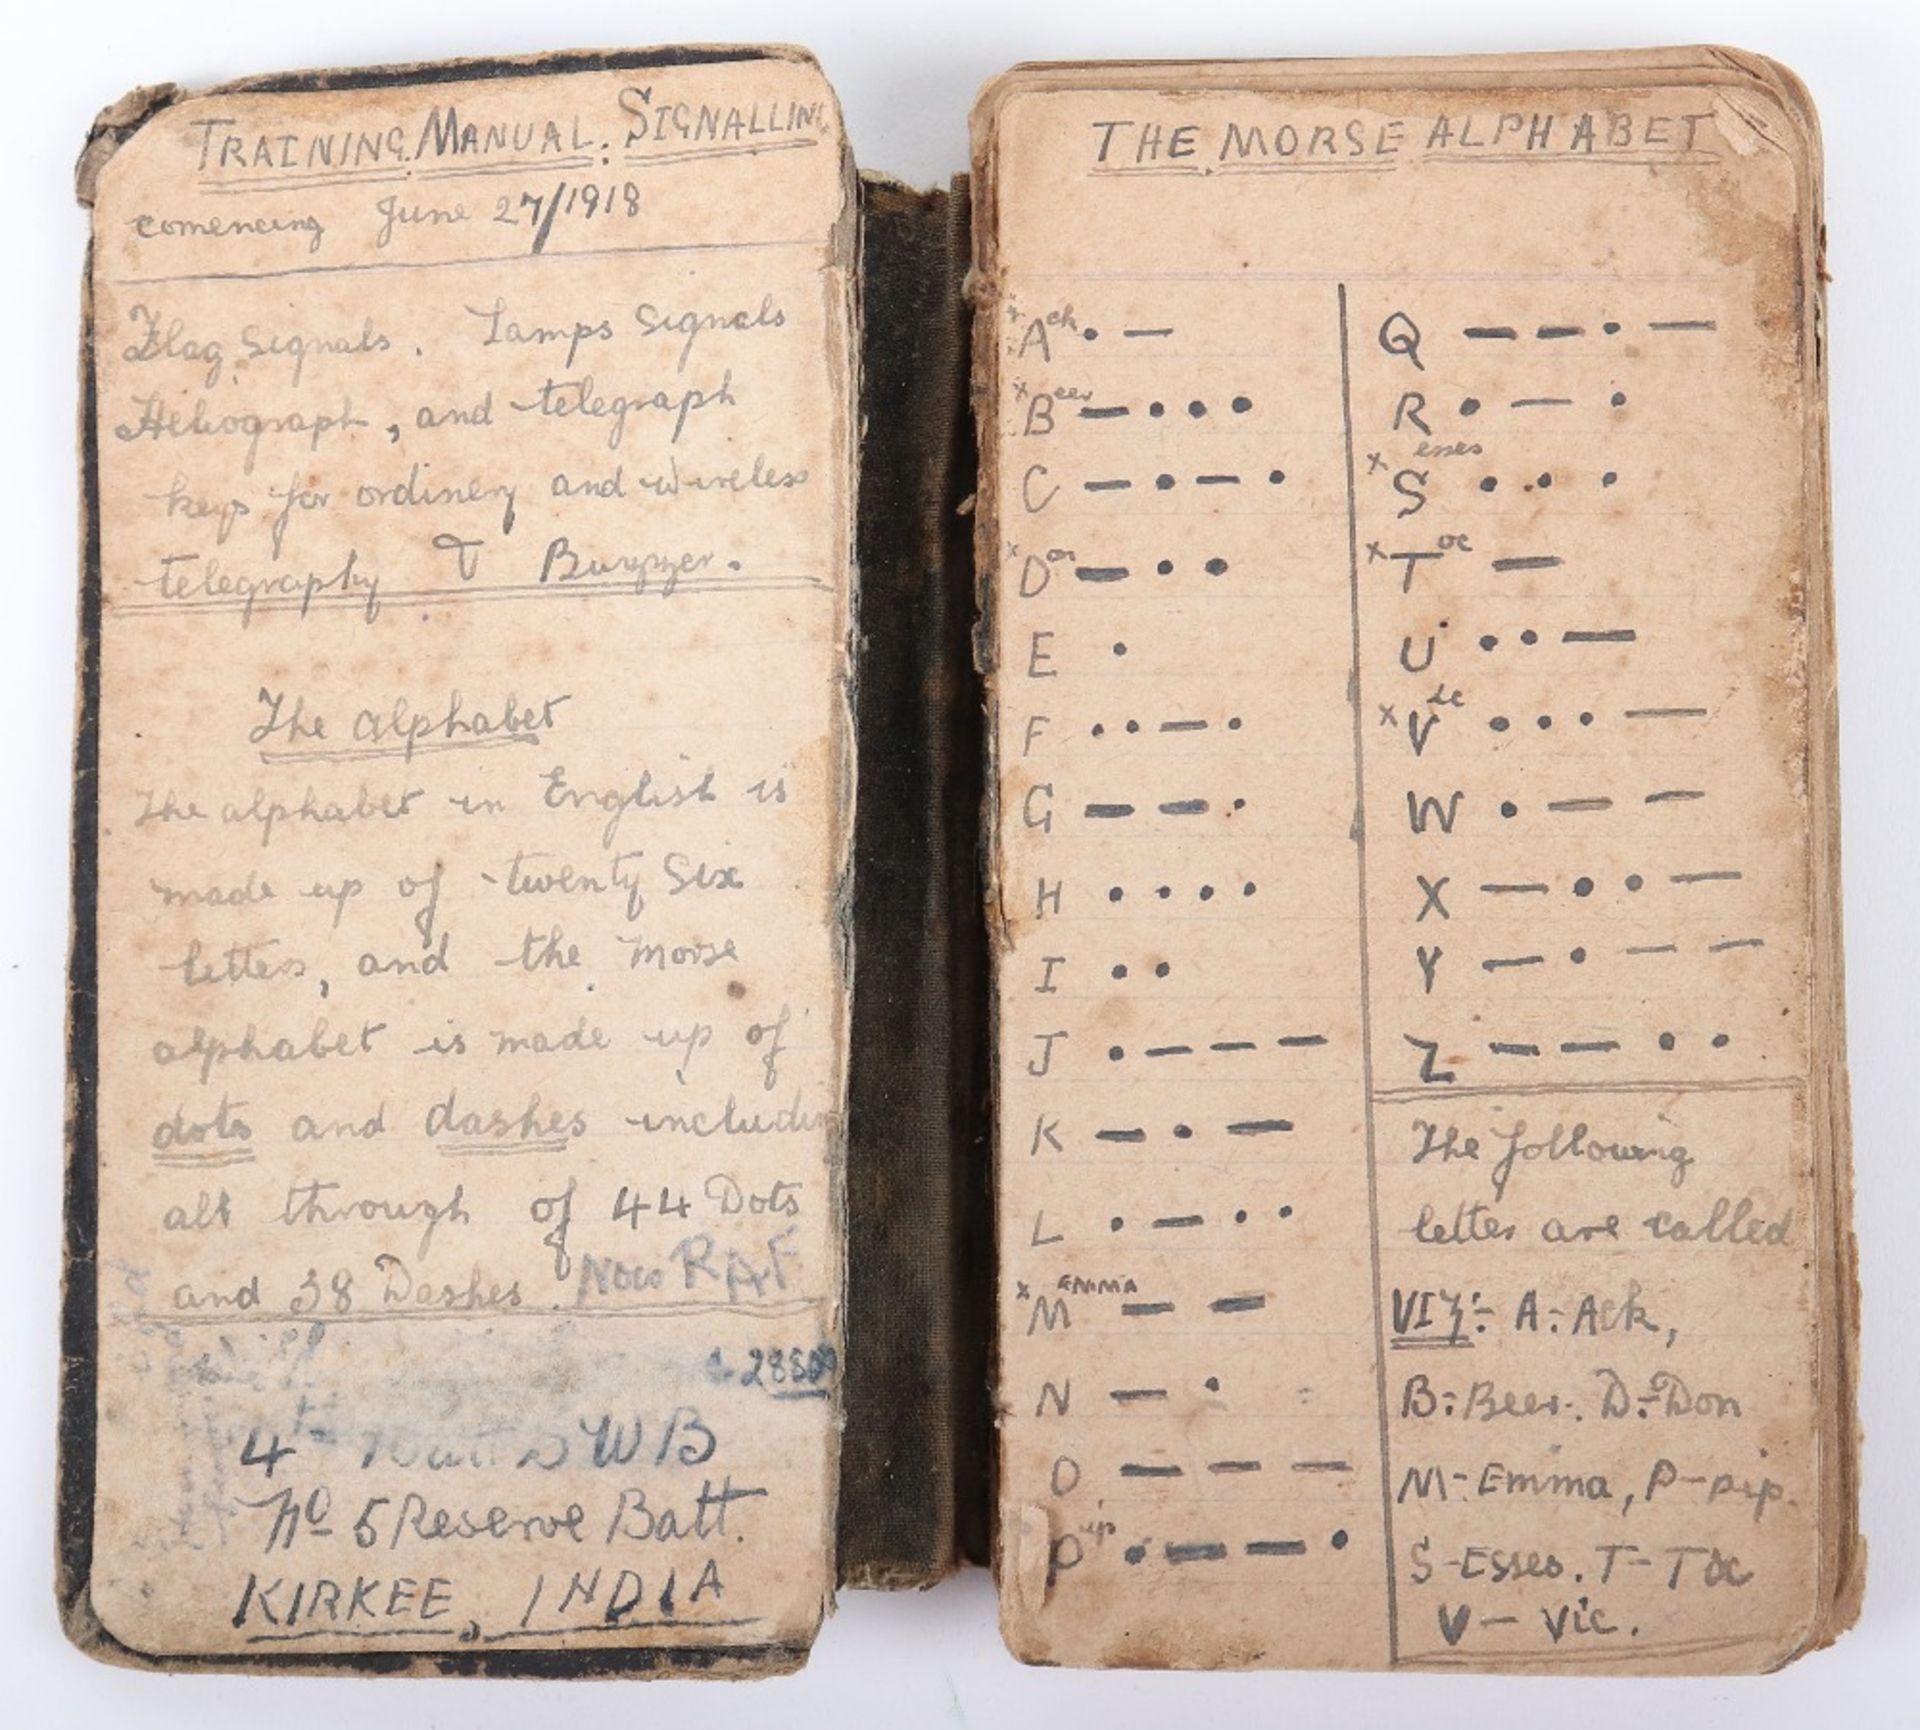 TRAINING. MANUAL. SIGNALLING
comencing June 27/1918
Flag signals. Lamps signals
Heliograph, and telegraph
keys for ordinery and wireless
telegraphy & Buzzer.
The alphabet
The alphabet in English is
made up of twenty six
letters, and the morse
alphabet is made up of
dots and dashes includin
all through of 44 Dots
and 38 Dashes. Now RAF
4th Batt DWB
No 5 Reserve Batt.
KIRKEE, INDIA
THE MORSE ALPHABET
x Ack • —
x Beer — • • •
C — • — •
x Don — • •
E •
F • • — •
G — — •
H • • • •
I • •
J • — — —
K — • —
L • — • •
x M EMMA — —
N — •
O — — —
Pip • — — •
Q — — • —
R • — •
x S esses • • •
x Toc —
U • • —
x Vic • • • —
W • — —
X — • • —
Y — • — —
Z — — • •
The following
letter are called
VIZ:- A:- Ack,
B:- Beer. D:- Don
M:- Emma, P-pip.
S-Esses. T- Toc
V- Vic.